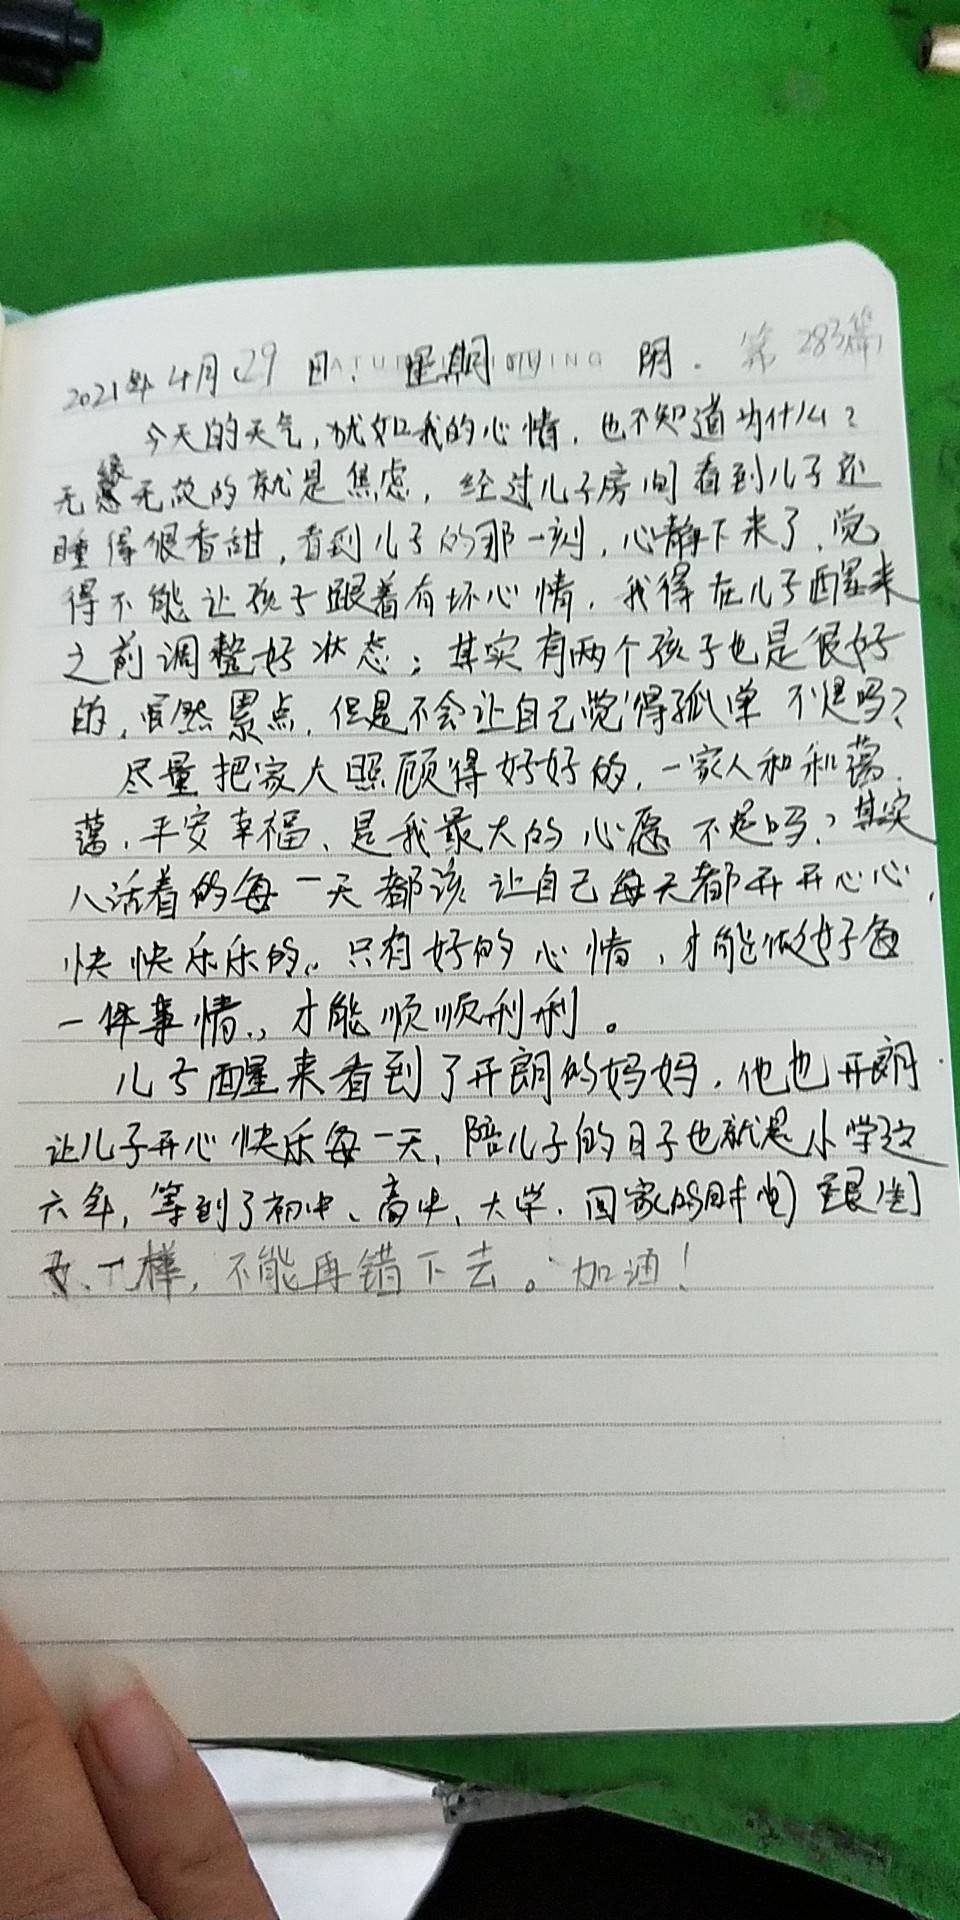 2021年4月29日. 星期四 阴. 第283篇
今天的天气,犹如我的心情,也不知道为什么?
无缘无故的就是焦虑,经过儿子房间看到儿子还
睡得很香甜,看到儿子的那一刻,心静下来了,觉
得不能让孩子跟着有坏心情,我得在儿子醒来
之前调整好状态;其实有两个孩子也是很好
的,虽然累点,但是不会让自己觉得孤单 不是吗?
尽量把家人照顾得好好的,一家人和和蔼
蔼,平安幸福、是我最大的心愿 不是吗?其实
人活着的每一天都该让自己每天都开开心心,
快快乐乐的。只有好的心情,才能做好每
一件事情,才能顺顺利利。
儿子醒来看到了开朗的妈妈,他也开朗.
让儿子开心快乐每一天,陪儿子的日子也就是小学这
六年,等到了初中、高中、大学.回家的时间跟闺
女一样,不能再错下去。加油!